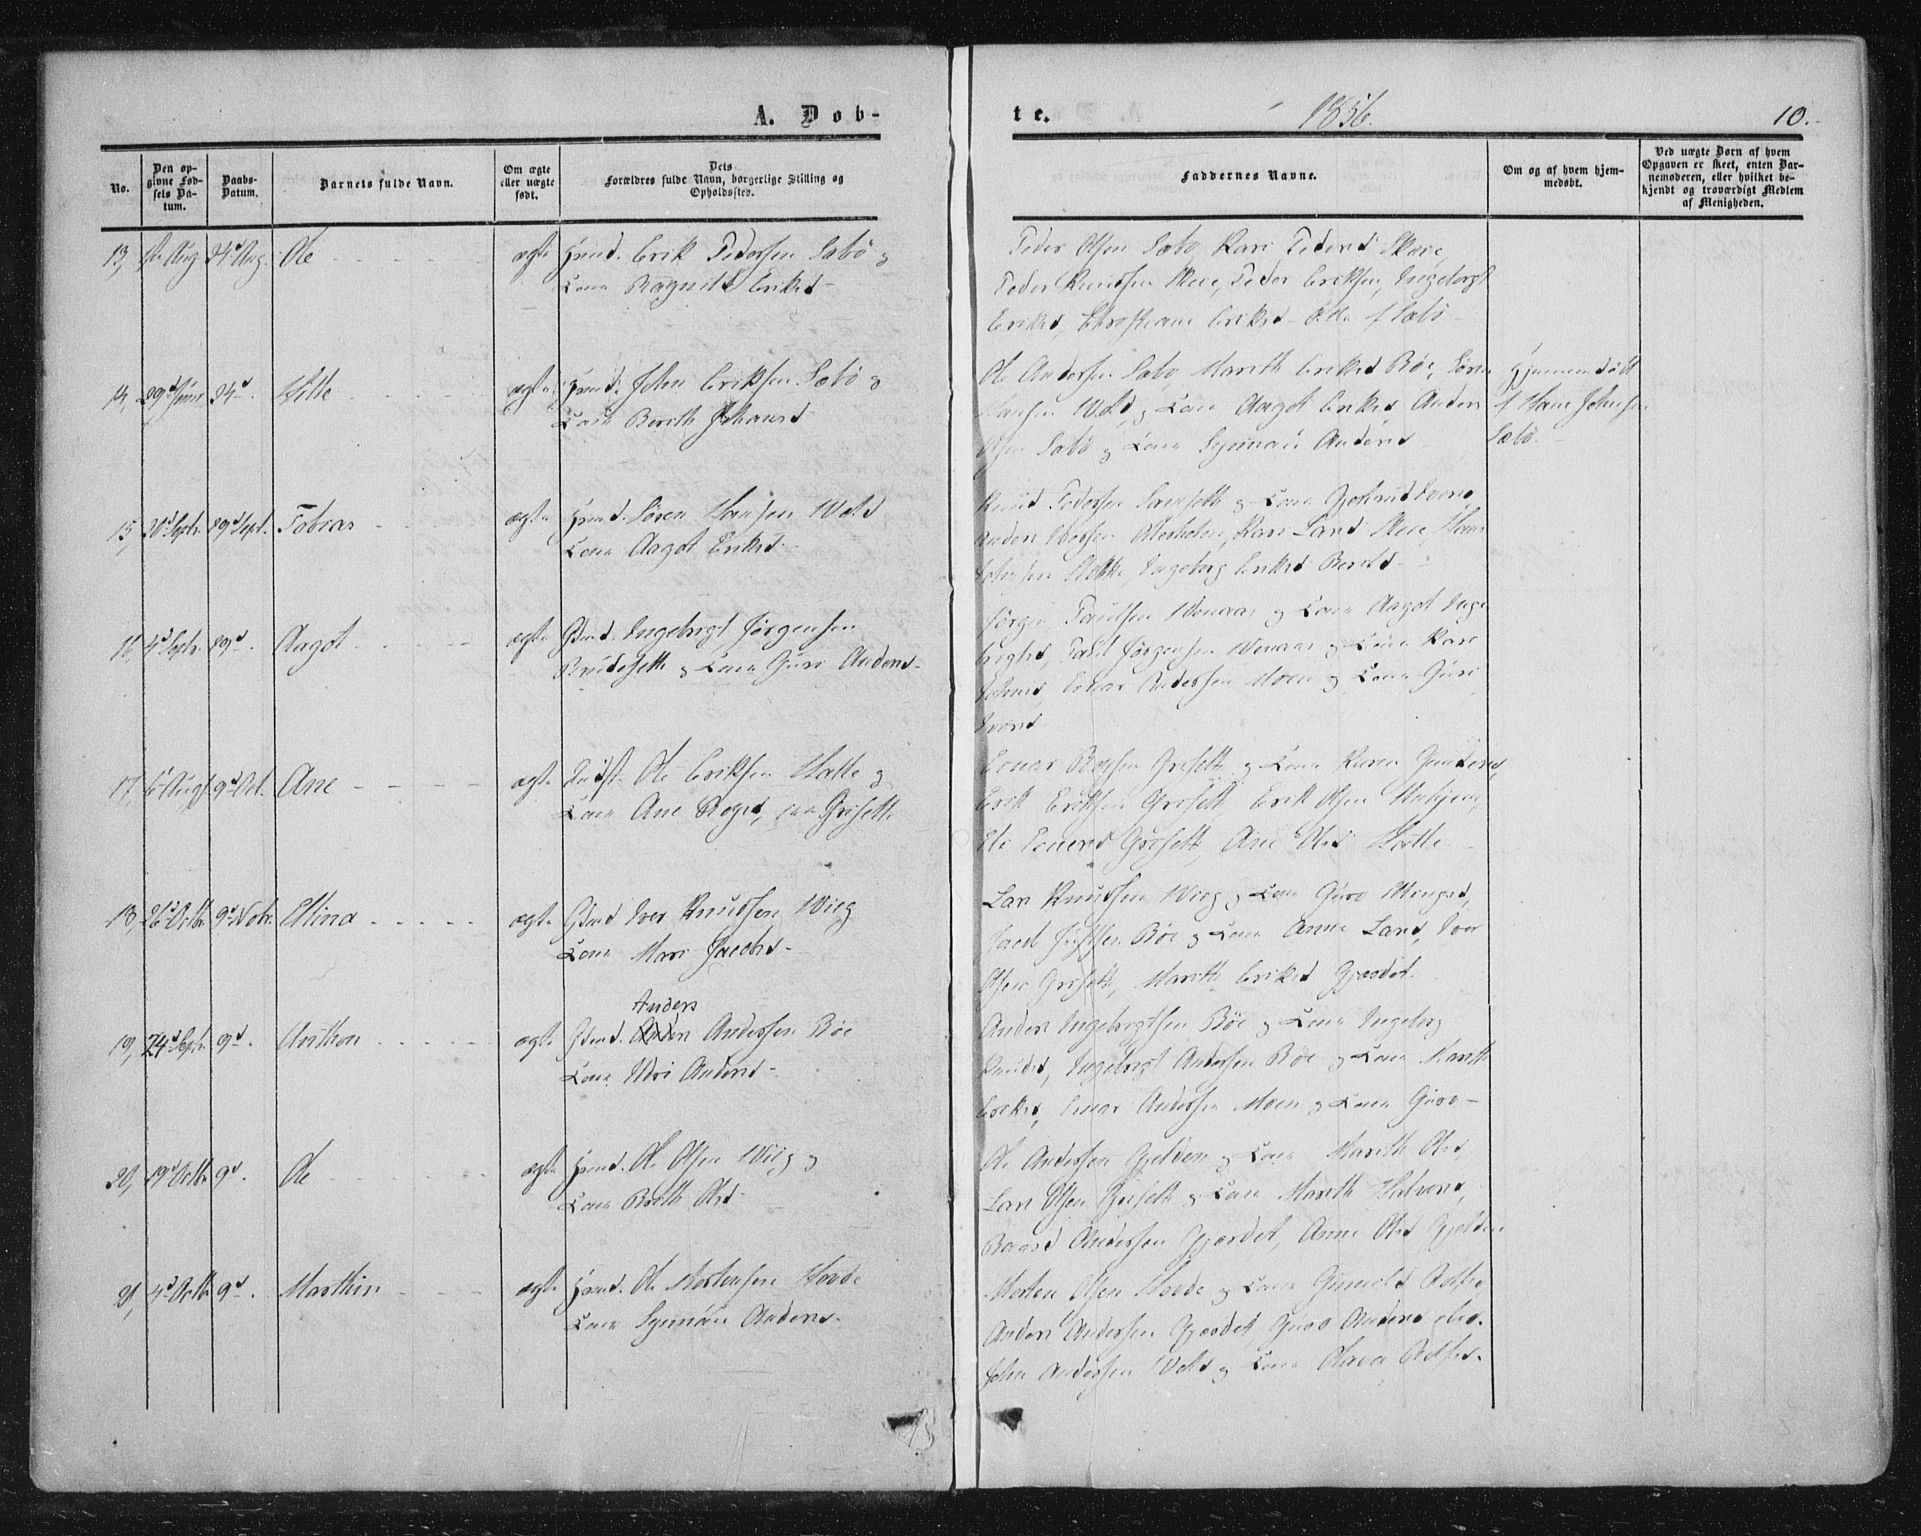 A. Døb-
te. 1856. 10.
No.
Den opgivne Fødsels Datum.
Daabs-Datum.
Barnets fulde Navn.
Om ægte eller uægte født.
Dets Forældres fulde Navn, borgerlige Stilling og Opholdssted.
Faddernes Navne.
Om og af hvem hjemmedøbt.
Ved uægte Børn af hvem Opgaven er skeet, enten Barnemoderen, eller hvilket bekjendt og troværdigt Medlem af Menigheden.
13, 1ste Aug 24d Aug. Ole ægte Hmd. Erik Pedersen Sæbö og
Kone Ragnild Eriksd
Peder Olsen Sæbö, Kari Pedersd Skeie,
Peder Knudsen Skeie, Peder Eriksen, Ingeborg
Eriksd, Christiane Eriksd Alle f Sæbö
14, 29d Juni 24d. ægte Hmd. John Eriksen Sæbö og
Kone Berith Johansd
Ole Andersen Sæbö, Marith Eriksd Böe, Sören
Hansen Vold og Kone Aagot Eriksd Anders
Olsen Sæbö og Kone Synnau Andersd
Hjemmedöbt
f Hans Johnsen
Sæbö.
15, 20d Septr. 29d Sept. Tobias ægte Hmd. Sören Hansen Wold
Kone Aagot Eriksd
Knud Pedersen og Kone Gjertrud Iversd
Anders Kari Larsd Skeie, Hans
Johnsen Ingeborg Eriksd
16, 4d Septr. 29d. Aagot ægte Gbmd. Ingebrigt Jörgensen
og Kone Guri Andersd
Jörgen Paulsen og Kone Aagot Inge-
brigtsd, Paul Jörgensen og Kone Kari
Johnsd, Einar Andersen Moen og Kone Guri
Iversd
17, 6d Augt. 9d Oct. Ane ægte Indst. Ole Eriksen Halle og
Kone Ane Roaldsd, Grisett
Einar Grisett og Kone Karen Gundersd,
Erik Eriksen Grisett, Erik Olsen
Eli Einersd Grisett, Ane Olsd Halle
18, 26d Octbr. 9d Novbr. Ellina ægte Gbmd Iver Knudsen Wiig
Kone Mari Jacobsd
Lars Knudsen Wiig og Kone Guro
Jacob Böe og Kone Anne Larsd, Iver
Olsen Grisett, Marith Eriksd Gjerdet.
19, 24d Septr. 9d. Anthon ægte Gbmd. Anders Andersen Böe
Kone Andersd
Anders Ingebrigtsen Böe og Kone Ingeborg
Knudsd, Ingebrigt Andersen Böe og Kone Marith
Eriksd, Einar Andersen Moen og Kone Guro
20, 19d Octbr. 9d. Ole ægte Hmd. Ole Olsen Wiig og
Kone Berith Olsd
Ole Andersen Gjelden og Kone Marith Olsd,
Lars Olsen Grisett og Kone Marith Halvorsd,
Baard Andersen Gjerdet, Anne Olsd Gjelden
21, 4d Octbr. 9d. Marthin ægte Hmd. Ole Mortensen Hovde
Kone Synnau Andersd
Morten Olsen Hovde og Kone Gunild
Anders Andersen Gjerdet, Guro Andersd ibid.
John Andersen Wold og Kone Olava